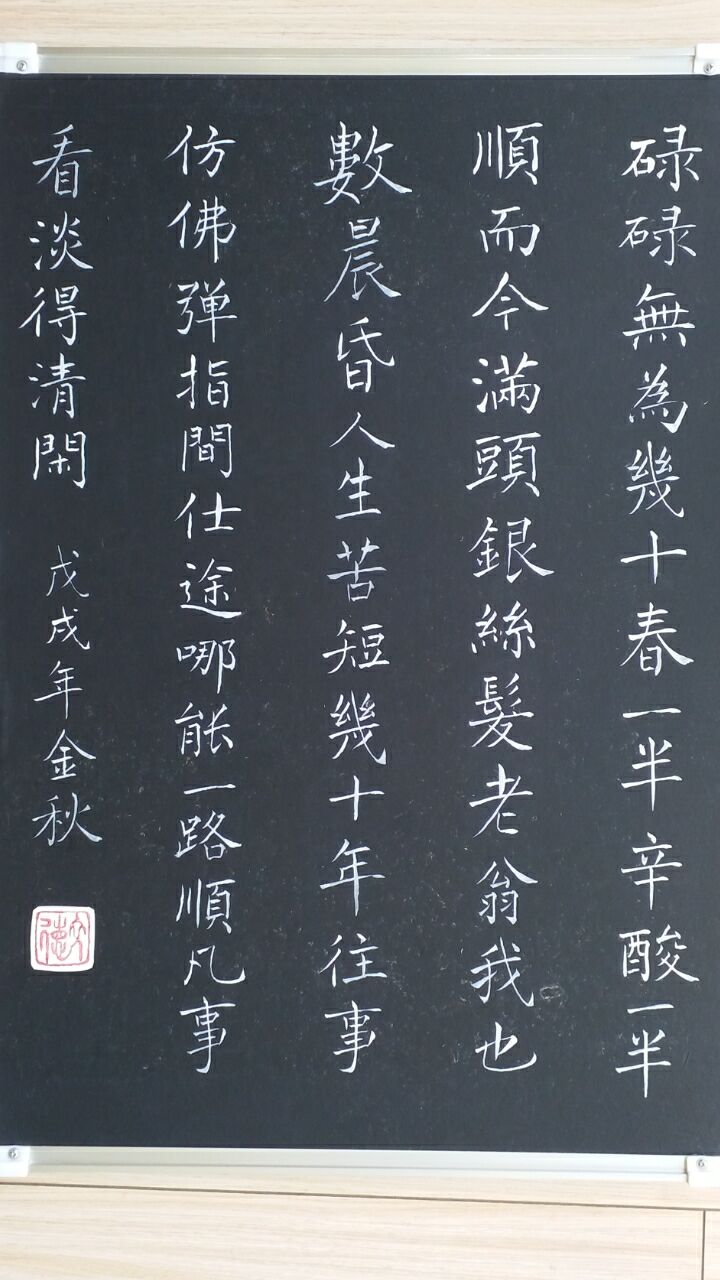 碌碌無為幾十春一半辛酸一半
順而今滿頭銀絲髮老翁我也
數晨昏人生苦短幾十年往事
仿佛弹指間仕途哪能一路順凡事
看淡得清閑
戊戌年金秋